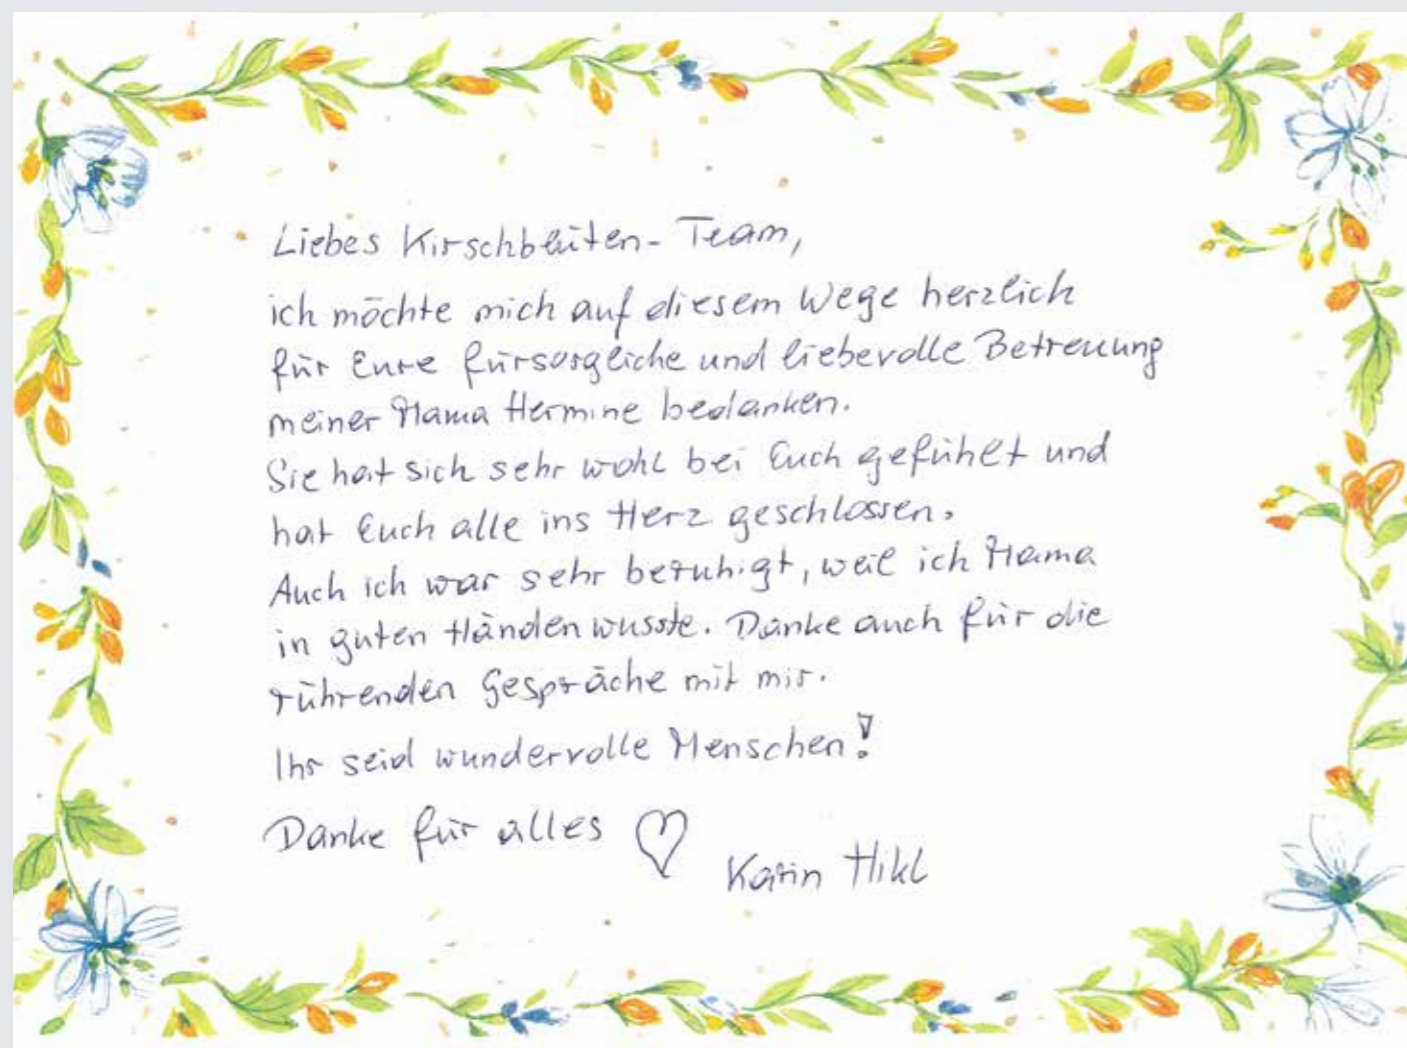 Liebes Kirschblüten-Team,
ich möchte mich auf diesem Wege herzlich
für Eure fürsorgliche und liebevolle Betreuung
meiner Mama Hermine bedanken.
Sie hat sich sehr wohl bei Euch gefühlt und
hat Euch alle ins Herz geschlossen.
Auch ich war sehr beruhigt, weil ich Mama
in guten Händen wusste. Danke auch für die
rührenden Gespräche mit mir.
Ihr seid wundervolle Menschen!
Danke für alles ♡
Karin Hikl